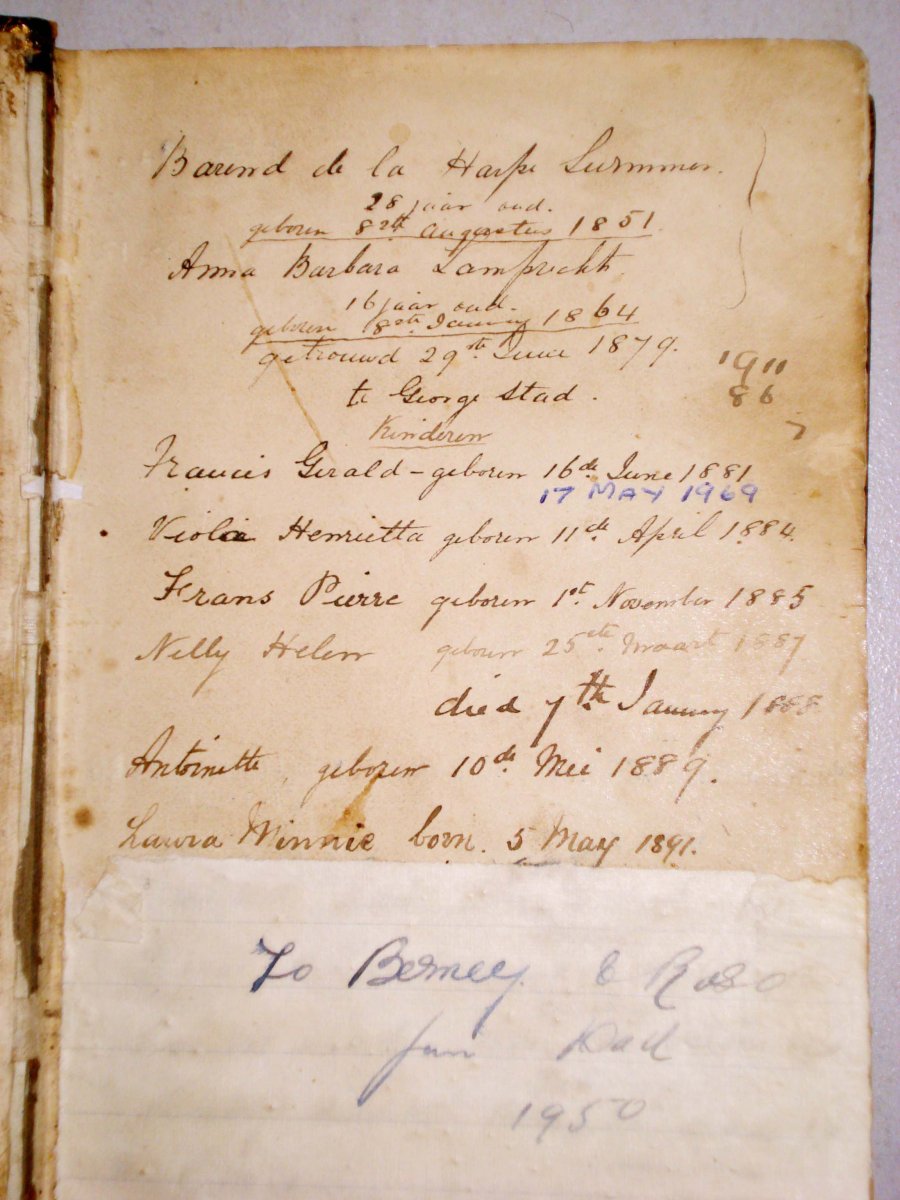 Barend de la Harpe
28 jaar oud.
geboren 8ste Augustus 1851.
Anna Barbara Lamprecht
16 jaar oud.
geboren 8ste January 1864
getrouwd 29th June 1879.
te George Stad.
1911
86
Kinderen
Francis Gerald - geboren 16de June 1881
17 MAY 1969
Viola Henrietta geboren 11de April 1884.
Frans Pierre geboren 1st November 1885
Nelly Helen geboren 25ste Maart 1887
died 7th January 1888
Antoinette, geboren 10de Mei 1889.
Laura Winnie born. 5 May 1891.
To & Rose
from Dad
1950